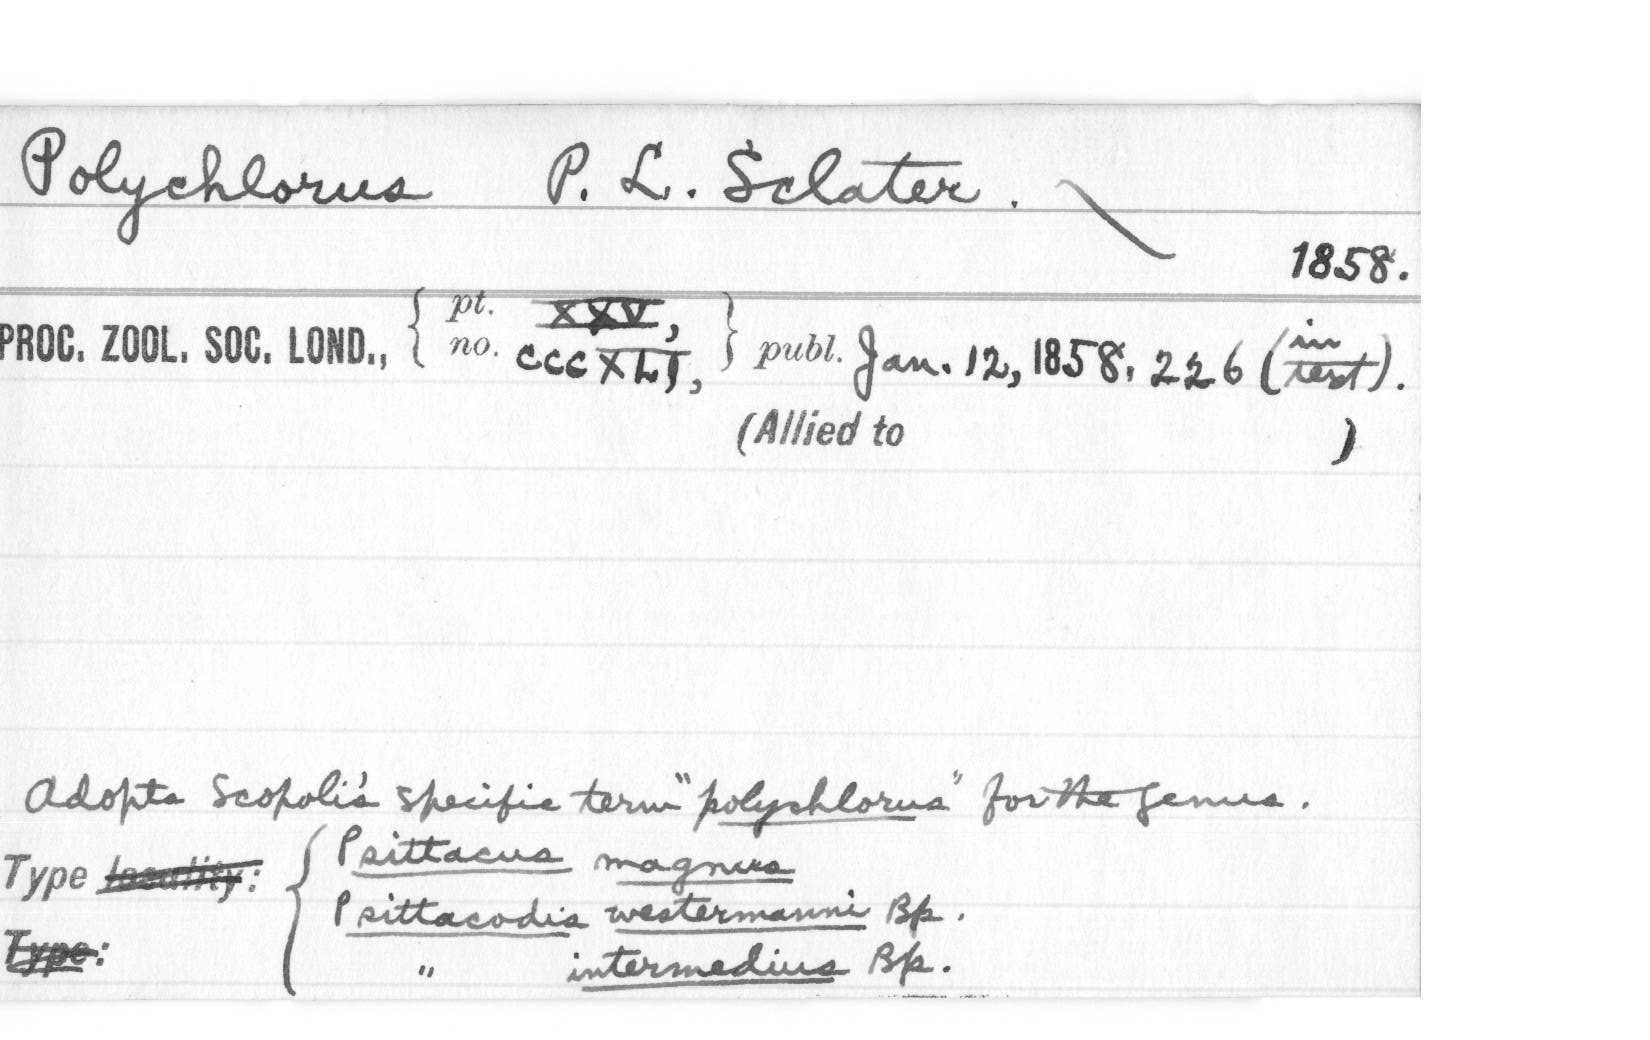 Polychlorus P. L. Sclater.
1858.
PROC. ZOOL. SOC. LOND., { pt. XXV, no. CCCXLI, } publ. Jan. 12, 1858, 226 (in text).
(Allied to )
Adopts Scopoli's specific term "polychlorus" for the genus.
Type locality: { Psittacus magnus
Psittacodis westermanni Bp.
Type: " intermedius Bp.